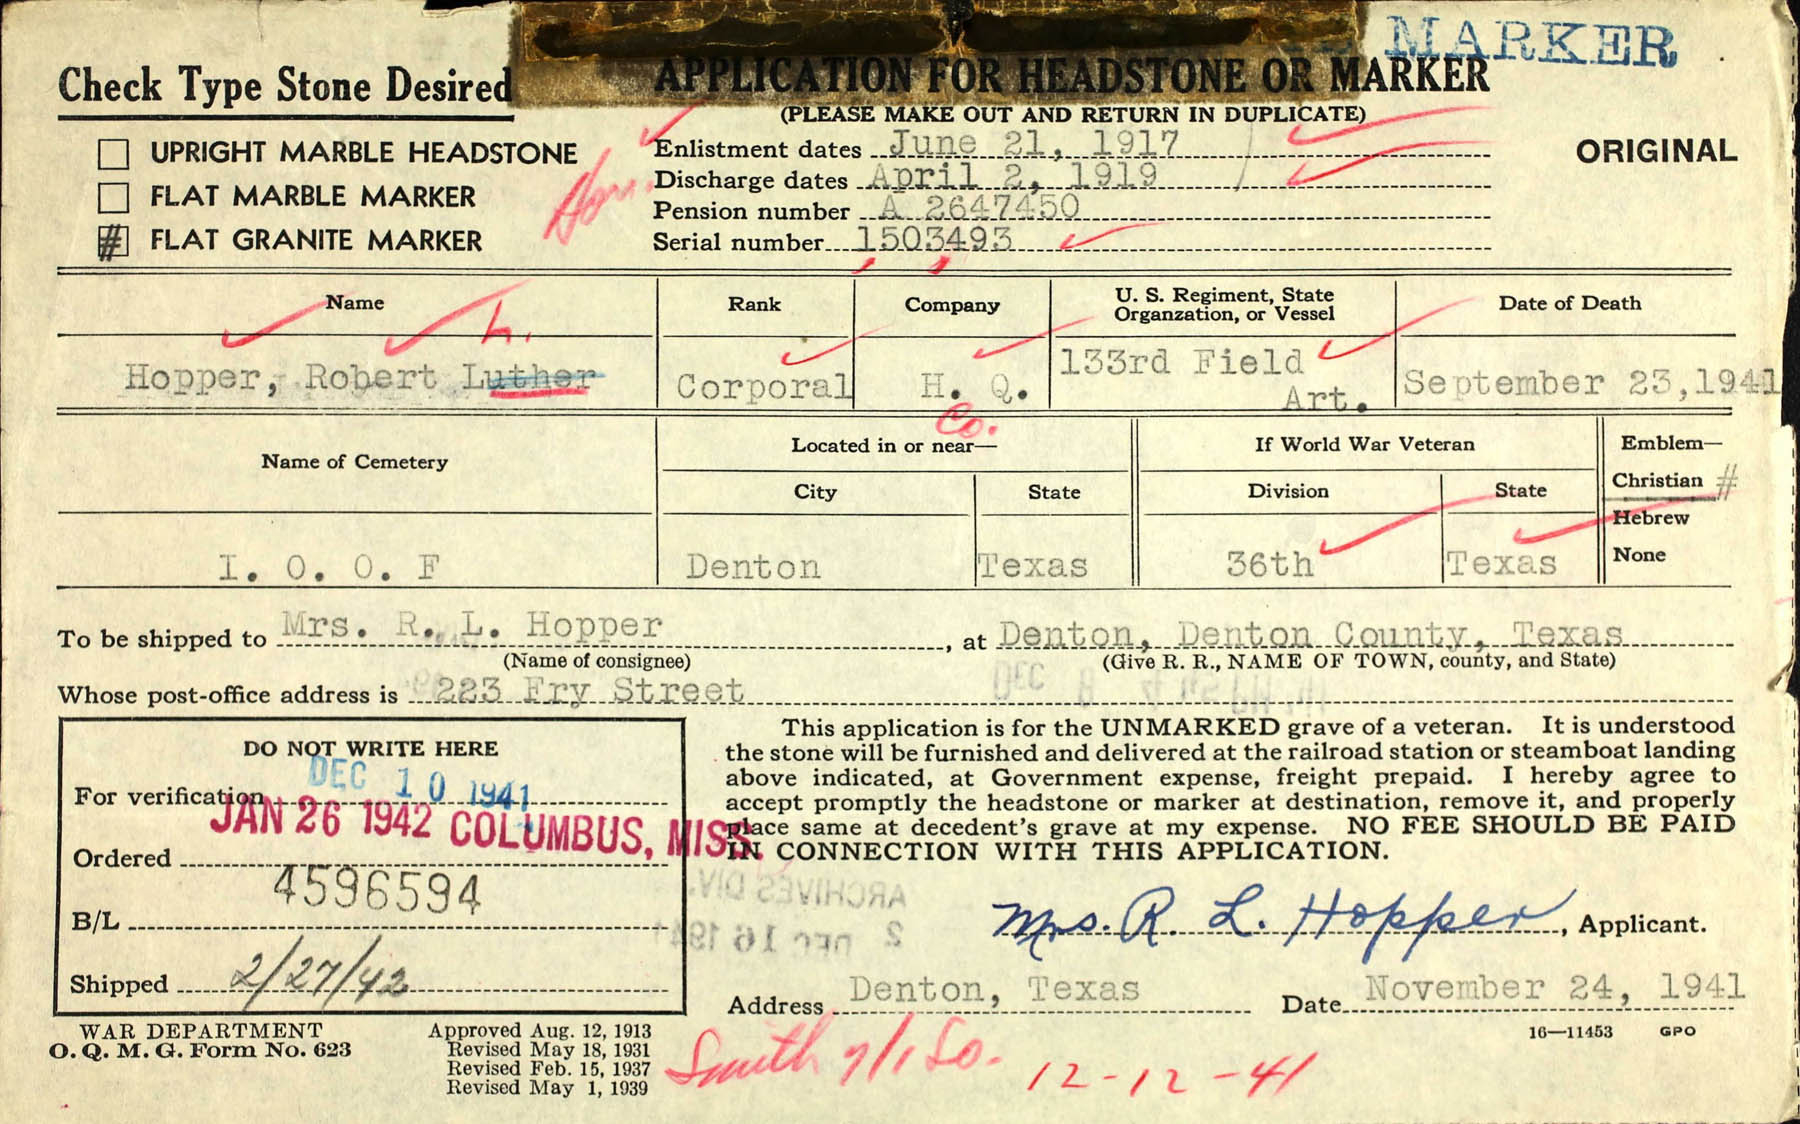 MARKER
Check Type Stone Desired
APPLICATION FOR HEADSTONE OR MARKER
(PLEASE MAKE OUT AND RETURN IN DUPLICATE)
ORIGINAL
UPRIGHT MARBLE HEADSTONE
FLAT MARBLE MARKER
# FLAT GRANITE MARKER
Hon.
Enlistment dates June 21, 1917
Discharge dates April 2, 1919
Pension number A 2647450
Serial number 1503493
Name
Rank
Company
U. S. Regiment, State
Organzation, or Vessel
Date of Death
L.
Hopper, Robert Luther
Corporal
H. Q.
Co.
133rd Field
Art.
September 23, 1941
Name of Cemetery
Located in or near—
City
State
If World War Veteran
Division
State
Emblem—
Christian #
Hebrew
None
I. O. O. F
Denton
Texas
36th
Texas
To be shipped to Mrs. R. L. Hopper, at Denton, Denton County, Texas
(Name of consignee)
(Give R. R., NAME OF TOWN, county, and State)
Whose post-office address is 223 Fry Street
DO NOT WRITE HERE
DEC 10 1941
For verification
JAN 26 1942 COLUMBUS, MISS.
Ordered
4596594
B/L
Shipped 2/27/42
This application is for the UNMARKED grave of a veteran. It is understood
the stone will be furnished and delivered at the railroad station or steamboat landing
above indicated, at Government expense, freight prepaid. I hereby agree to
accept promptly the headstone or marker at destination, remove it, and properly
place same at decedent's grave at my expense. NO FEE SHOULD BE PAID
IN CONNECTION WITH THIS APPLICATION.
ARCHIVES DIV.
2 DEC 16 1941
Mrs. R. L. Hopper, Applicant.
Address Denton, Texas
Date November 24, 1941
16—11453 GPO
WAR DEPARTMENT
O. Q. M. G. Form No. 623
Approved Aug. 12, 1913
Revised May 18, 1931
Revised Feb. 15, 1937
Revised May 1, 1939
Smith
12-12-41